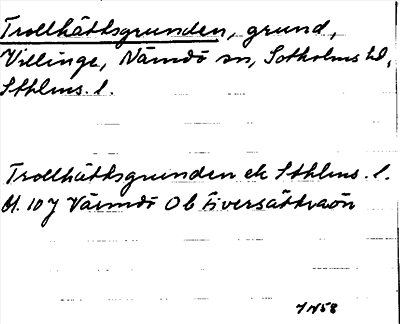 Trollhättsgrunden, grund,
Villinge, Nämdö sn, Sotholms hd,
Sthlms. l.
Trollhättsgrunden ek Sthlms. l.
bl. 107 Värmdö Ob
JN58